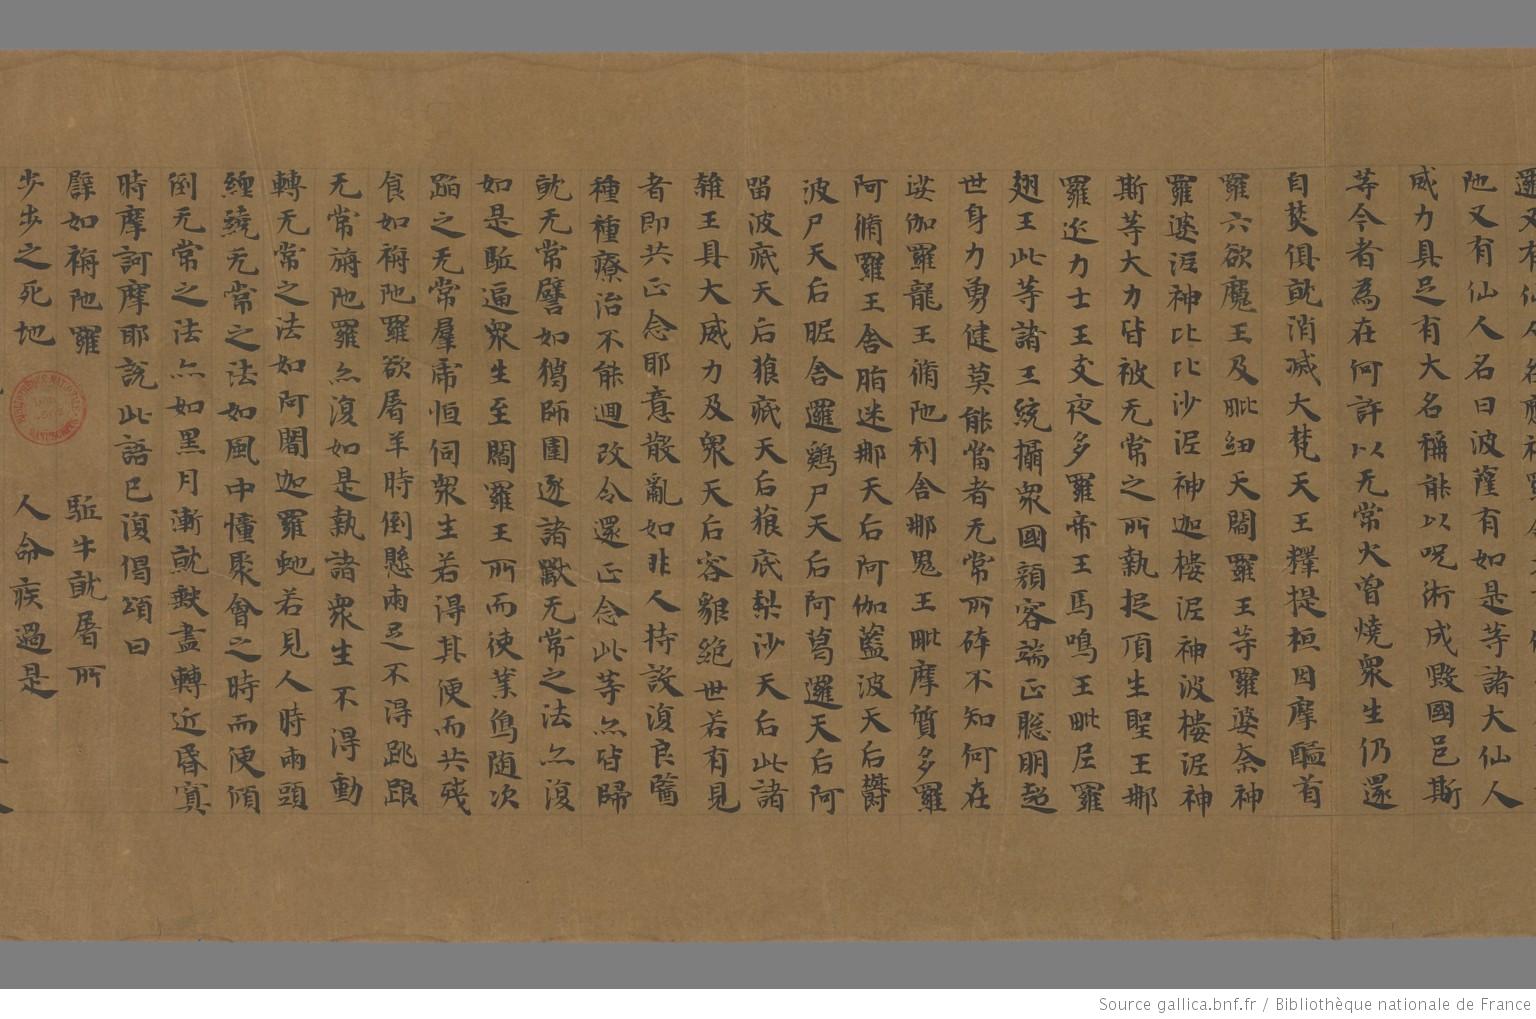 陁又有仙人名曰波薩有如是等諸大仙人
威力具足有大名稱能以呪術成毀國邑斯
等今者為在何許以无常火曽燒眾生仍還
自焚俱就消滅大梵天王釋提桓因摩醯首
羅六欲魔王及毗紐天閻羅王等羅婆柰神
羅婆泥神比比沙泥神迦樓泥神波樓泥神
斯等大力皆被无常之所執捉頂生聖王那
羅延力士王支夜多羅帝王馬鳴王毗尼羅
翅王此等諸王統攝眾國顔容端正聡明超
世身力勇健莫能當者无常所碎不知何在
娑伽羅龍王脩陁利舍那鬼王毗摩質多羅
阿脩羅王舍脂迷那天后阿伽藍波天后欝
波尸天后昵舍邏鷄尸天后阿葛邏天后阿
留波底天后狼底天后狼底梨沙天后此諸
雜王具大威力及眾天后容貌絶世若有見
者即共正念耶意散亂如非人持設復良醫
種種療治不能迴改令還正念此等亦皆歸
就无常譬如獦師圍逐諸獸无常之法亦復
如是駈逼眾生至閻羅王所而使業鳥随次
蹈之无常羣虎恒伺眾生若得其便而共殘
食如旃陁羅欲屠羊時倒懸兩足不得跳踉
无常旃陁羅亦復如是執諸眾生不得動
轉无常之法如阿闍迦羅虵若見人時兩頭
纏繞无常之法如風中幢聚會之時而便傾
倒无常之法亦如黑月漸就缺盡轉近昏冥
時摩訶摩耶說此語已復偈頌曰
譬如旃陁羅 駈牛就屠所
步步之死地 人命疾過是
Source gallica.bnf.fr / Bibliothèque nationale de France